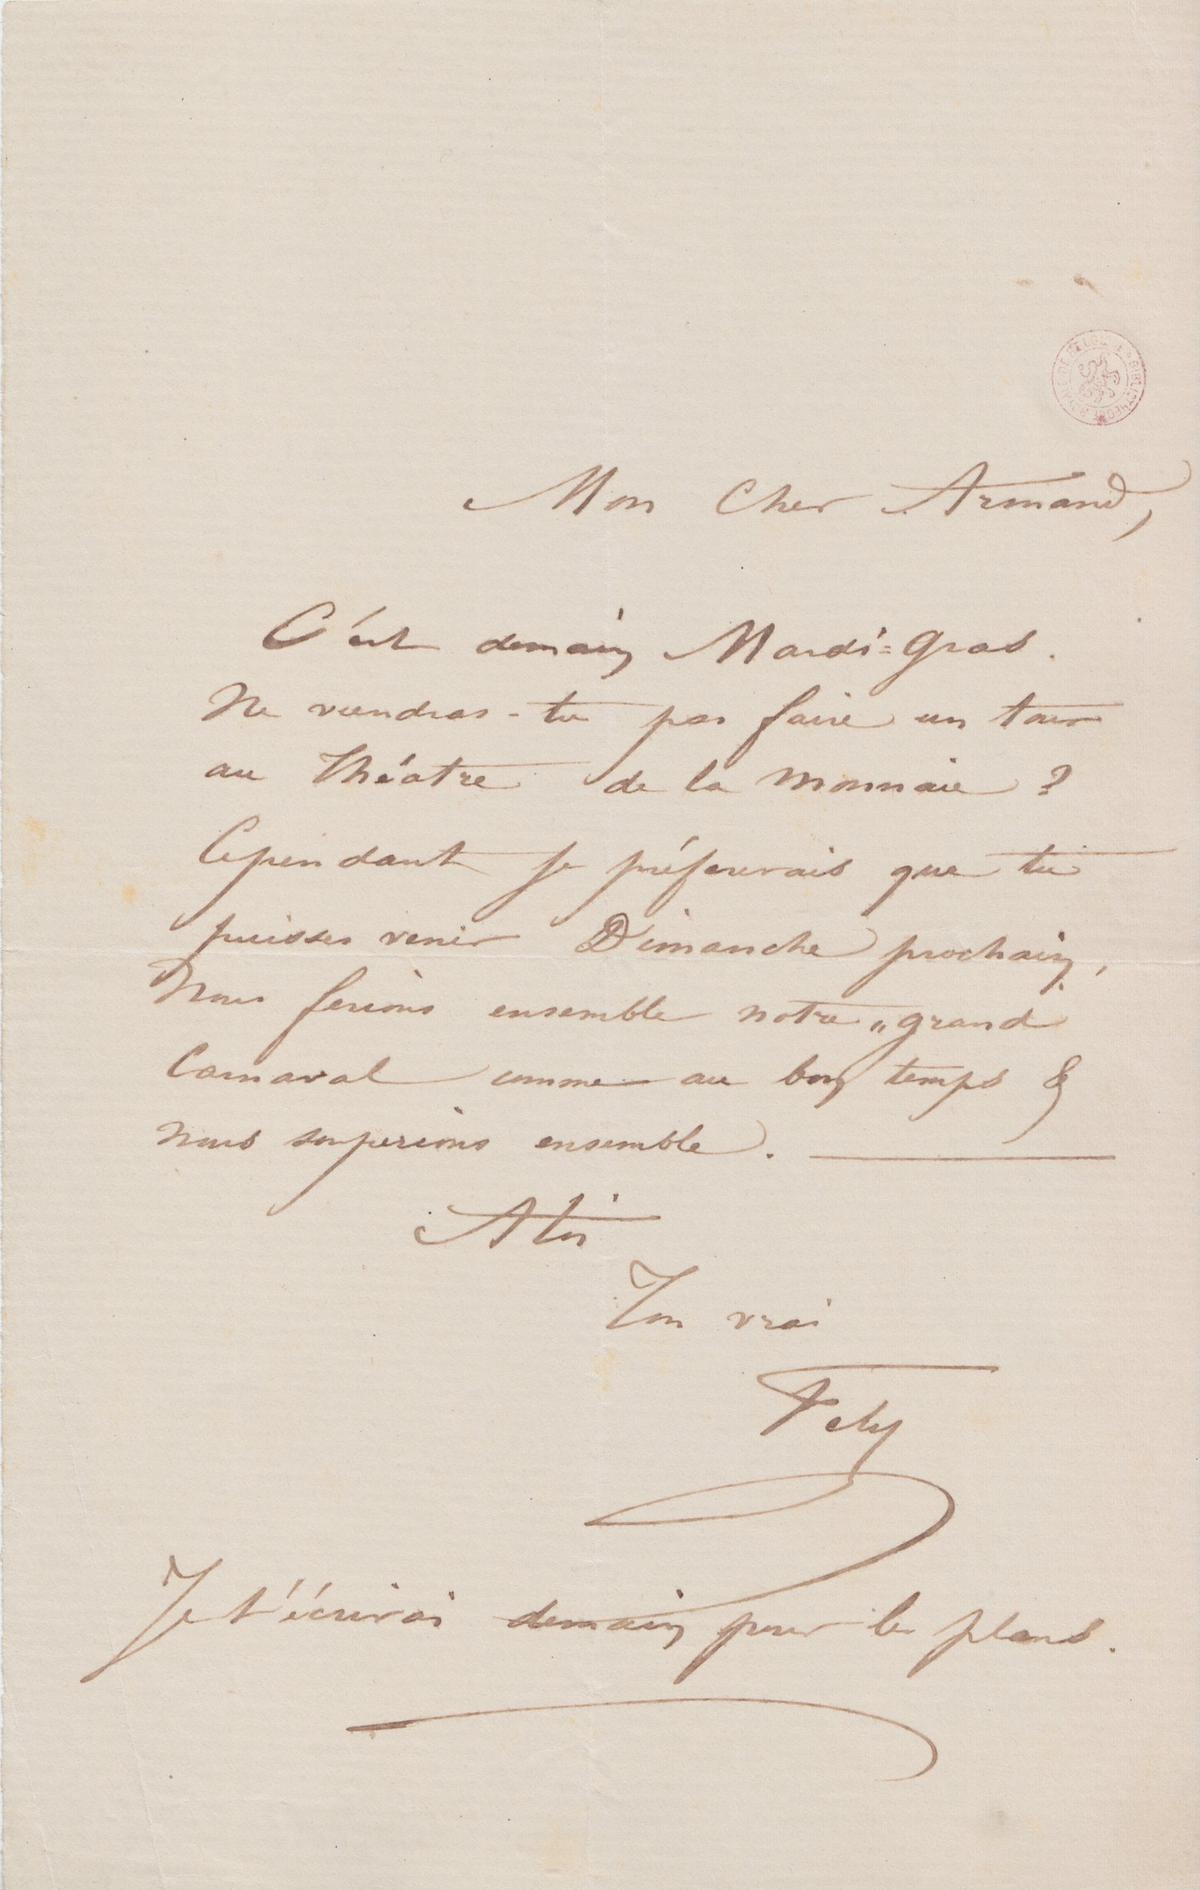 BIBLIOTHEQUE ROYALE DE BELGIQUE
Mon Cher Armand,
C'est demain Mardi=Gras.
Ne viendras-tu pas faire un tour
au Théatre de la Monnaie ?
Cependant je préfererais que tu
puisses venir Dimanche prochain,
Nous ferions ensemble notre „grand
Carnaval comme au bon temps &
nous souperions ensemble.
A toi
Ton vrai
Fely
Je t'écrirai demain pour les plans.